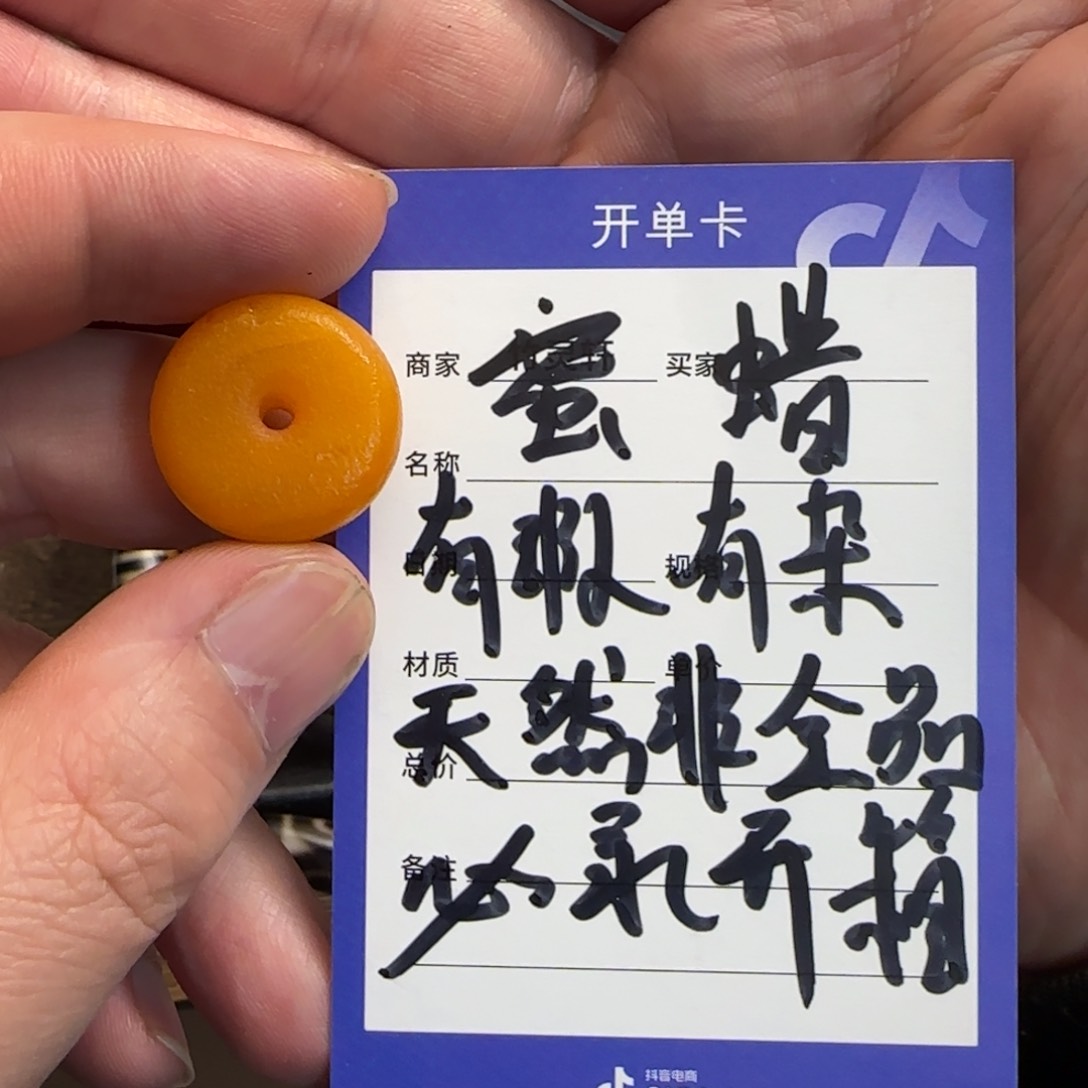 开单卡
商家 买家
蜜蜡
名称
有瑕有杂
日期 规格
材质 单价
天然非全品
总价
备注
必录开箱
抖音电商